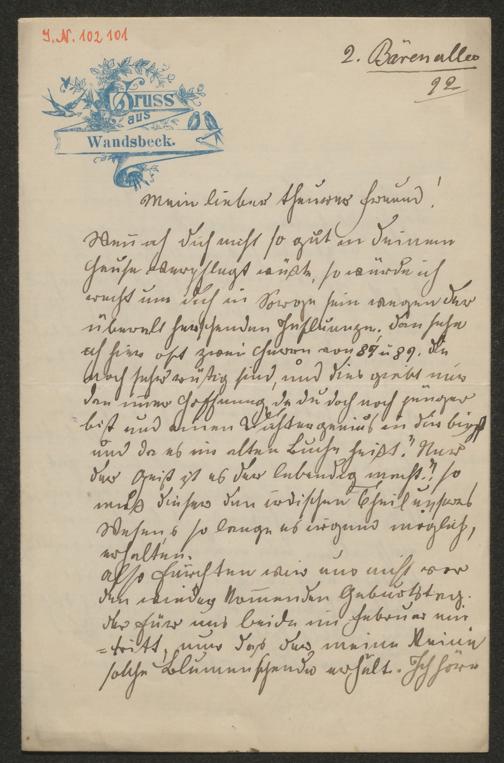 I.N. 102101
2. Bärenallee
92
Gruss
aus
Wandsbeck.
Mein lieber theurer Freund!
Wenn ich dich nicht so gut in deinem
Hause verpflegt wüßte, so würde ich
recht um dich in Sorge sein wegen der
überall herrschenden Influenza. Dan sehe
ich hier oft zwei Herren von 87 u 89. die
noch sehr rüstig sind, und dies giebt mir
den Hoffnung, da du doch noch jünger
bist und einen Dichtergenius in dir birgst
und da es im alten Buche heißt: "Nur
der Geist ist es der lebendig macht", so
muß dieser den irdischen Theil unseres
Wesens so lange es irgend möglich,
erhalten.
Also fürchten wir uns nicht vor
den wieder kommenden Geburtstag.
der für uns beide im Februar ein
=tritt, nur daß der meine keine
solche Blumenspende erhält. Ich höre